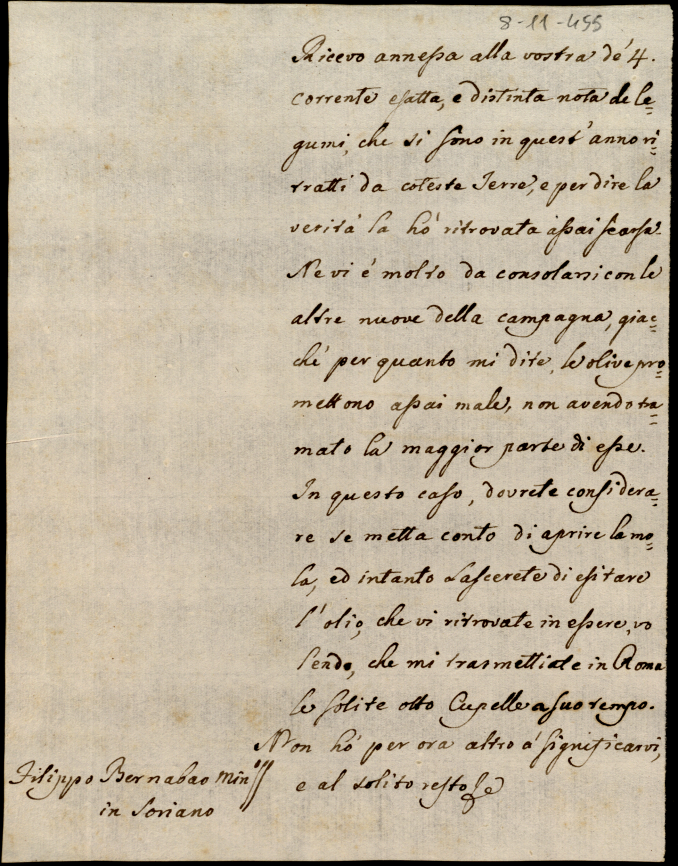 8-11-455
Ricevo annessa alla vostra de' 4.
corrente esatta, e distinta nota de le=
gumi, che si sono in quest'anno ri=
tratti da coteste Terre, e per dire la
verità la hò ritrovata assai scarsa.
Ne vi è molto da consolarsi con le
altre nuove della campagna, giac=
chè per quanto mi dite, le olive pro=
mettono assai male, non avendo ra=
mato la maggior parte di esse.
In questo caso, dovrete considera=
re se metta conto di aprire la mo=
la, ed intanto Lascerete di esitare
l'olio, che vi ritrovate in essere, vo
lendo, che mi trasmettiate in Roma
le solite otto Cupelle a suo tempo.
Non hò per ora altro à significarvi,
e al solito resto
Filippo Bernabao Min.
in Soriano